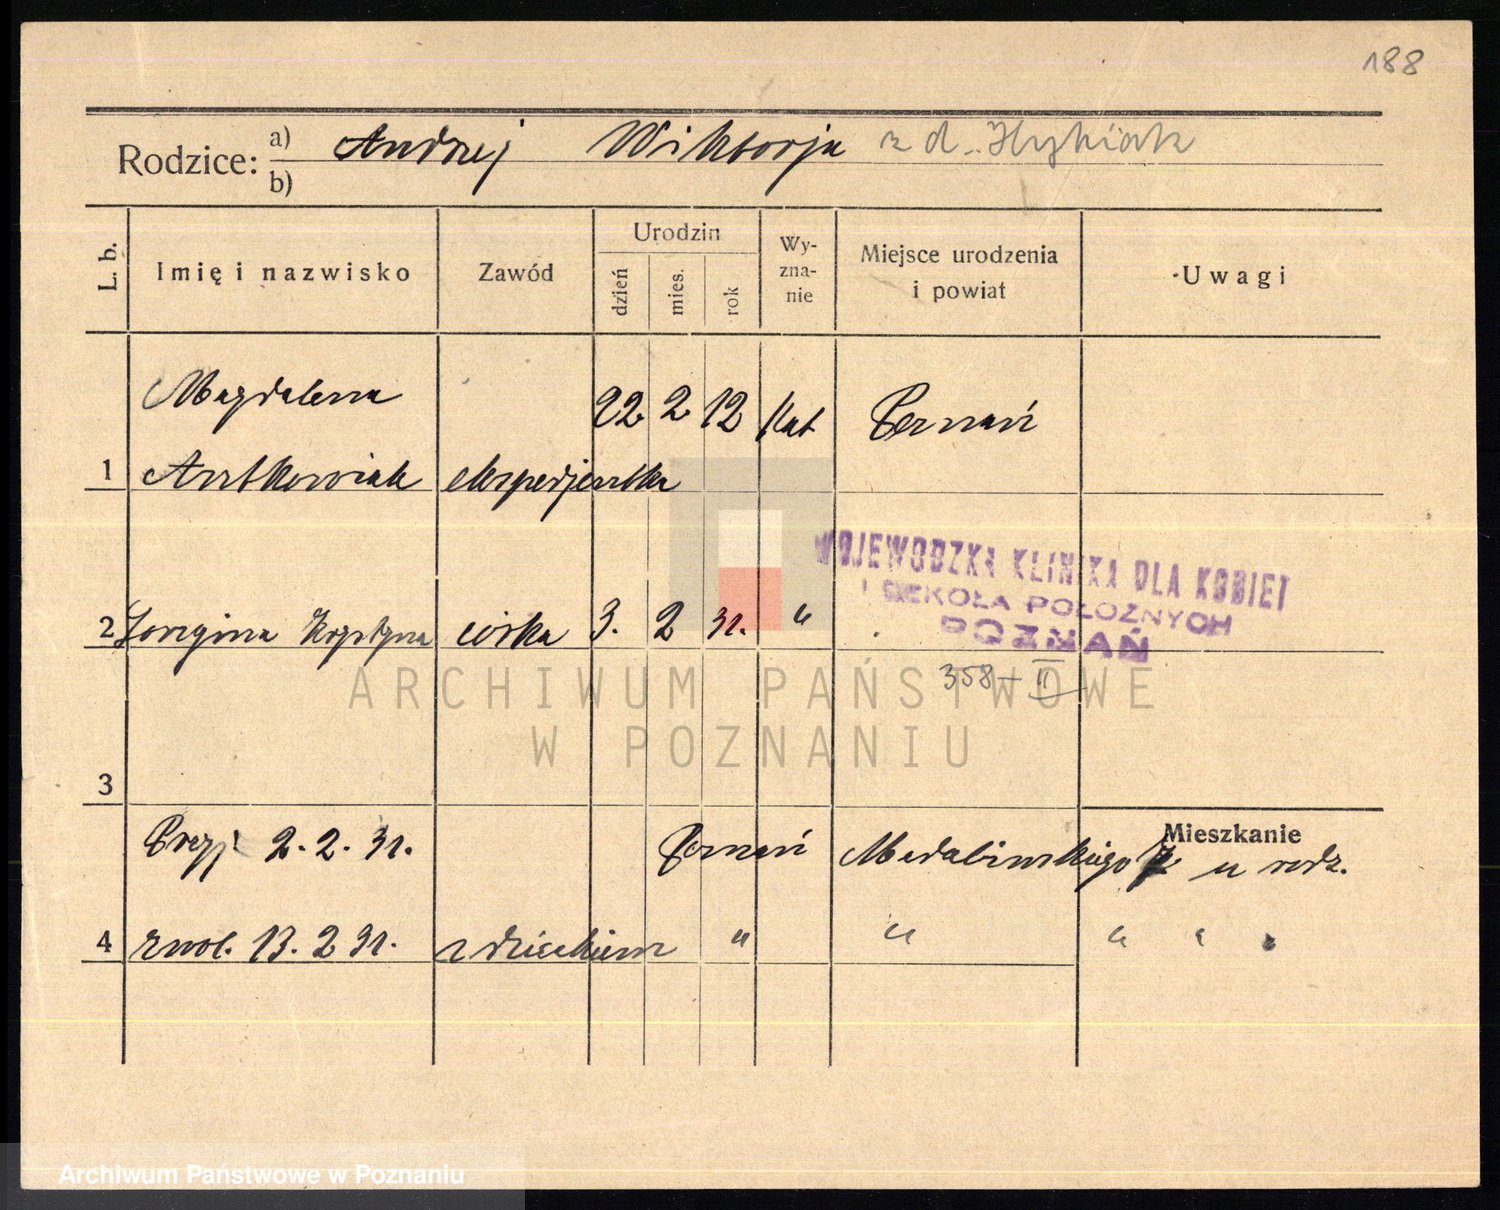 188
Rodzice: a) Andrzej Wiktorja z d.
b)
L. b. Imię i nazwisko Zawód Urodzin dzień mies. rok Wyznanie Miejsce urodzenia i powiat Uwagi
Magdalena 22 2 12 Kat Poznań
1 Antkowiak ekspedjentka
WOJEWODZKA KLINIKA DLA KOBIET
I SZKOŁA POŁOŻNYCH
POZNAŃ
2 Krystyna córka 3. 2 31. "
358-II
ARCHIWUM PAŃSTWOWE
W POZNANIU
3
Mieszkanie
Przyj 2. 2. 31. Poznań Madalińskiego u rodz.
4 zwol. 13. 2 31. z dzieckiem " " " " "
Archiwum Państwowe w Poznaniu